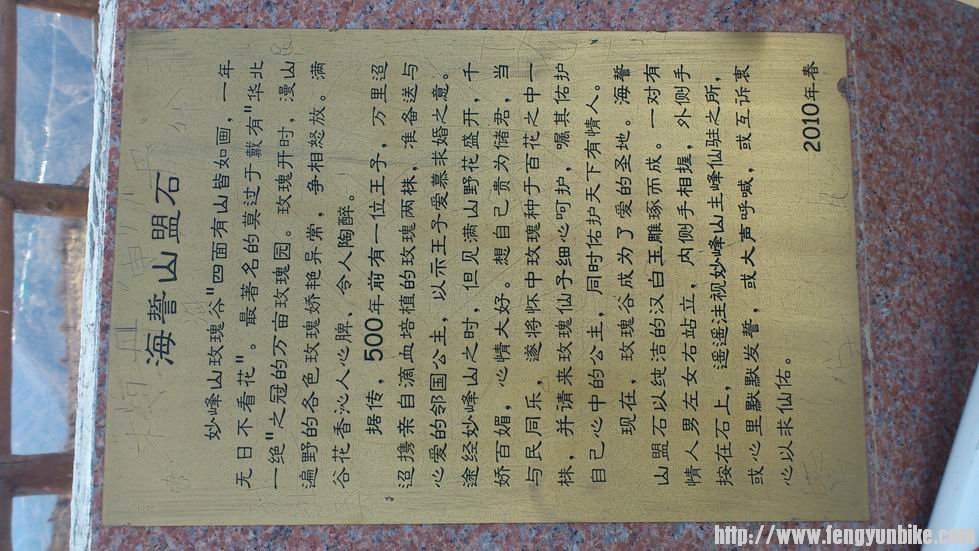 海誓山盟石
妙峰山玫瑰谷"四面有山皆如画，一年
无日不看花"。最著名的莫过于戴有"华北
一绝"之冠的万亩玫瑰园。玫瑰开时，漫山
遍野的各色玫瑰娇艳异常，争相怒放。满
谷花香沁人心脾、令人陶醉。
据传，500年前有一位王子，万里迢
迢携亲自滴血培植的玫瑰两株，准备送与
心爱的邻国公主，以示王子爱慕求婚之意。
途经妙峰山之时，但见满山野花盛开，千
娇百媚，心情大好。想自己贵为储君，当
与民同乐，遂将怀中玫瑰种于百花之中一
株，并请来玫瑰仙子细心呵护，嘱其佑护
自己心中的公主，同时佑护天下有情人。
现在，玫瑰谷成为了爱的圣地。海誓
山盟石以纯洁的汉白玉雕琢而成。一对有
情人男左女右站立，内侧手相握，外侧手
按在石上，遥遥注视妙峰山主峰仙驻之所，
或心里默默发誓，或大声呼喊，或互诉衷
心以求仙佑。
2010年春
http://www.fengyunbike.com